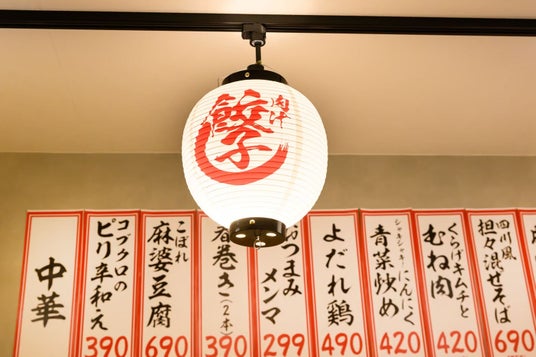 肉汁
餃子
四川風
担々混ぜそば
690
くらげキムチと
むね肉
420
シャキシャキ!にんにく
青菜炒め
420
よだれ鶏
490
おつまみ
メンマ
299
春巻き(2本)
390
こぼれ
麻婆豆腐
690
コブクロの
ピリ辛和え
390
中華